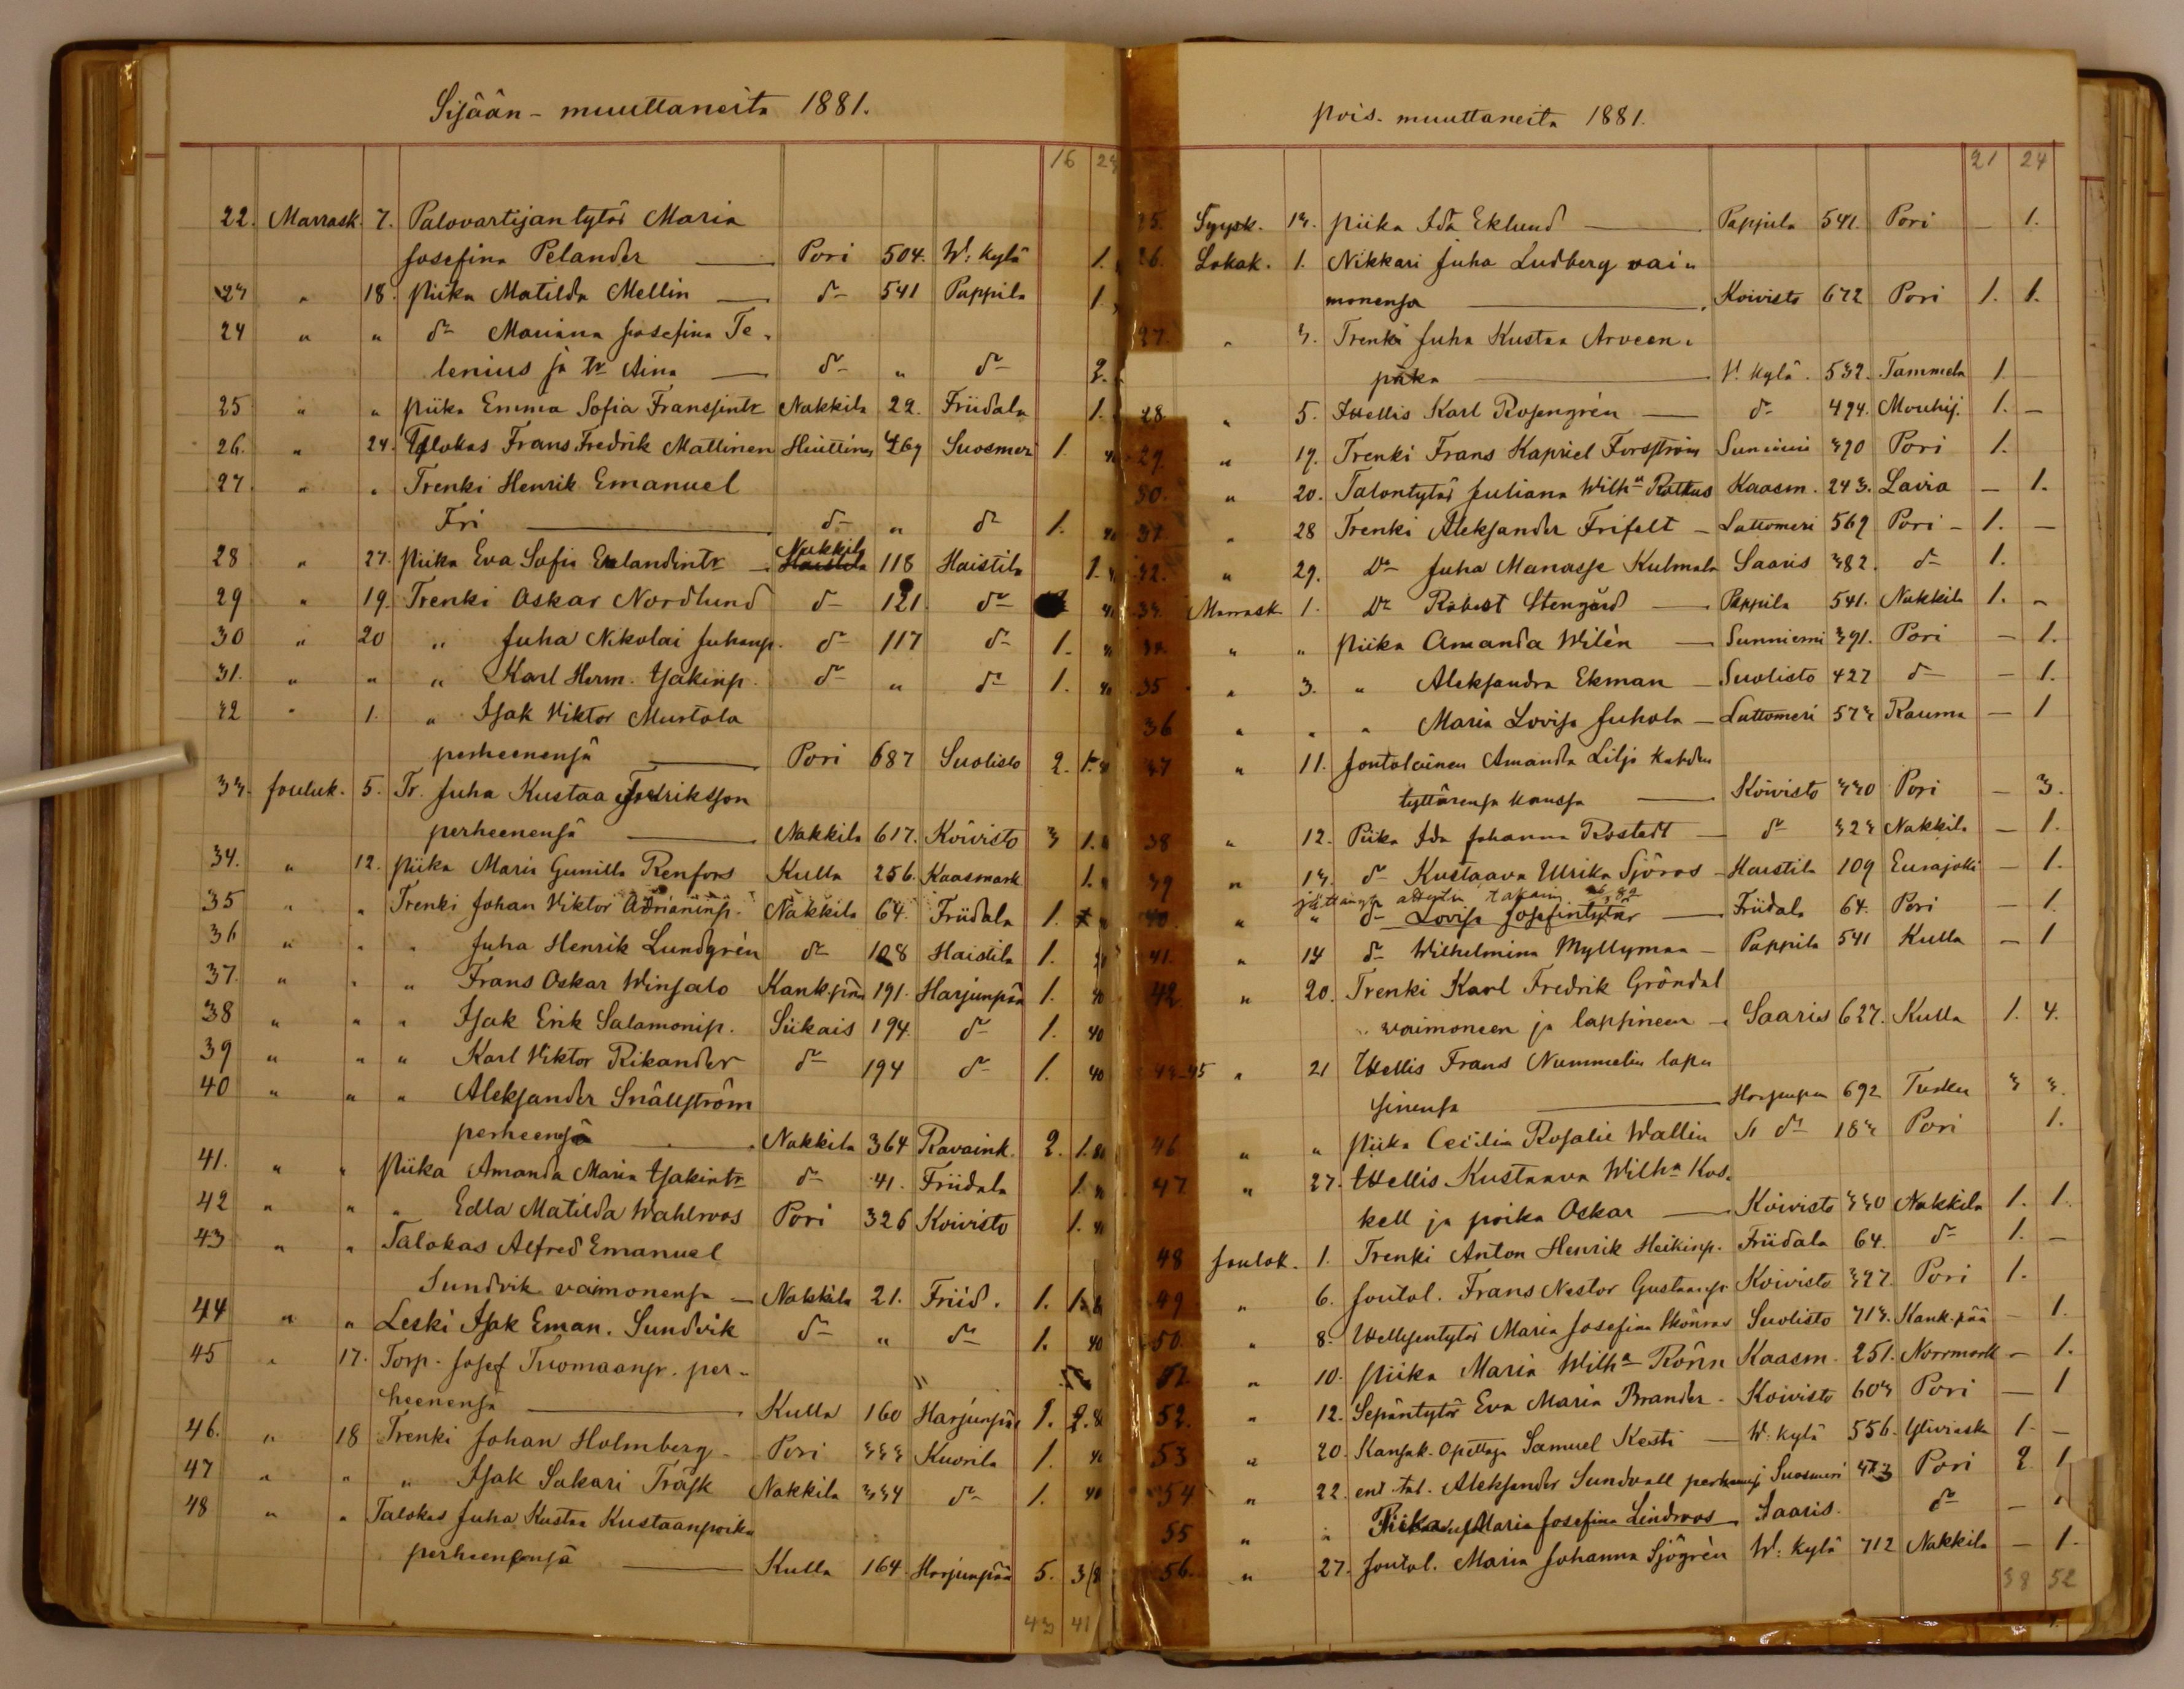 Sisään-muuttaneita 1881.
16 24
22. Marrask. 7. Palovartijan tytär Maria
Josefina Pelander — Pori 504. W: kylä 1.
23 " 18. Piika Matilda Mellin — do 541 Pappila 1.
24 " " do Mariana Josefina Te-
lenius ja tr Aina — do " do 2.
25 " " Piika Emma Sofia Fransintr Nakkila 22. Friidala 1.
26. " 24. Talokas Frans Fredrik Mattinen Huittinen 269 Suosmeri 1. 40
27. " " Trenki Henrik Emanuel
Fri — do " do 1. 40
28 " 27. Piika Eva Sofia Erlandintr — Nakkila Haistila 118 Haistila 1.
29 " 19. Trenki Oskar Nordlund do 121 do 40
30 " 20 " Juha Nikolai Juhanp. do 117 do 1.
31. " " " Karl Herm. Isakinp. do " do 1. 40
32 " 1. " Isak Viktor Mustola
perheenensä — Pori 687 Suolisto 2. 1.
33. Jouluk. 5. Tr. Juha Kustaa Fredriksson
perheenensä — Nakkila 617. Koivisto 3 1.
34. " 12. Piika Maria Gunilla Renfors Kulla 256. Kaasmark 1.
35 " " Trenki Johan Viktor Adrianinp. Nakkila 64. Friidala 1.
36 " " " Juha Henrik Lundgrén do 108 Haistila 1.
37. " " " Frans Oskar Winsalo Kank.pää 191. Harjunpää 1. 40
38 " " " Isak Erik Salamonip. Siikais 194. do 1. 40
39 " " " Karl Viktor Rikander do 194 do 1. 40
40 " " " Aleksander Snällström
perheensä — Nakkila 364 Ravaink. 2. 1.
41. " " Piika Amanda Maria Isakintr do 41. Friidala 1.
42 " " " Edla Matilda Wahlroos Pori 326 Koivisto 1.
43 " " Talokas Alfred Emanuel
Sundvik vaimonensa — Nakkila 21. Friid. 1. 1.
44 " " Leski Isak Eman. Sundvik do " do 1. 40
45 " 17. Torp. Josef Tuomaanp. per-
heenensä — Kulla 160 Harjunpää 1. 2.
46. " 18 Trenki Johan Holmberg — Pori 333 Kuorila 1. 40
47 " " " Isak Sakari Träsk Nakkila 334 do 1. 40
48 " " Talokas Juha Kustaa Kustaanpoika
perheenensä — Kulla 164. Harjunpää 5. 3
43 41
pois-muuttaneita 1881.
21 24
25. Syysk. 13. Piika Ida Eklund — Pappila 541. Pori — 1.
26. Lokak. 1. Nikkari Juha Ludberg vai-
monensa — Koivisto 672 Pori 1. 1.
27. " 3. Trenki Juha Kustaa Arveen-
poika — W. kylä. 532. Tammela 1.
28. " 5. Itellis Karl Rosengrén — do 494. Mouhij. 1. —
29. " 19. Trenki Frans Kapriel Forsström Sunniemi 390 Pori 1.
30. " 20. Talontytär Juliana Wilha Rattus Kaasm. 243. Lavia — 1.
31. " 28 Trenki Aleksander Frifelt — Luttomeri 569 Pori — 1. —
32. " 29. Do Juha Manasse Kulmala Saaris 382. do 1.
33. Marrask. 1. Do Robert Stengård — Pappila 541. Nakkila 1. —
34. " " Piika Amanda Wilén — Sunniemi 391. Pori — 1.
35 " 3. " Aleksandra Ekman — Suolisto 427 do — 1.
36 " " " Maria Lovisa Juhola — Luttomeri 573 Rauma — 1
37 " 11. Joutolainen Amanda Lilja kahden
tyttärensä kanssa — Koivisto 330 Pori — 3.
38 " 12. Piika Ida Johanna Rostedt — do 323 Nakkila — 1.
39 " 13. do Kustaava Ulrika Sjöroos — Haistila 109 Eurajoki — 1.
40. " " do Lovisa Josefintytär — Friidala 64. Pori — 1.
41. " 14 do Wilhelmina Myllymaa — Pappila 541 Kulla — 1
42 " 20. Trenki Karl Fredrik Gröndal
vaimoneen ja lapsineen — Saaris 627. Kulla 1. 4.
43-45 " 21 Itellis Frans Nummelin lap-
sinensa — Harjunpää 692 Turku 3 3.
46 " " Piika Cecilia Rosalie Wallin do 183 Pori 1.
47. " 27. Itellis Kustaava Wilha Kos-
kell ja poika Oskar — Koivisto 330 Nakkila 1. 1.
48 Jouluk. 1. Trenki Anton Henrik Heikinp. Friidala 64. do 1. —
49 " 6. Joutol. Frans Nestor Gustaanp. Koivisto 327. Pori 1.
50. " 8. Itellisentytär Maria Josefina Skönroos Suolisto 713. Kank.pää — 1.
51. " 10. Piika Maria Wilha Rönn Kaasm. 251. Norrmark — 1.
52. " 12. Sepäntytär Eva Maria Brander — Koivisto 603 Pori — 1
53 " 20. Kansak. opettaja Samuel Kesti — W: kylä 556. Ylivieska 1. —
54 " 22. ent. tal. Aleksander Sundvall Suosmeri Pori 2 1
55 " " Piika Maria Josefina Lindroos — Saaris. do —
56. " 27. Joutol. Maria Johanna Sjögrén W: kylä 712 Nakkila — 1.
38 52